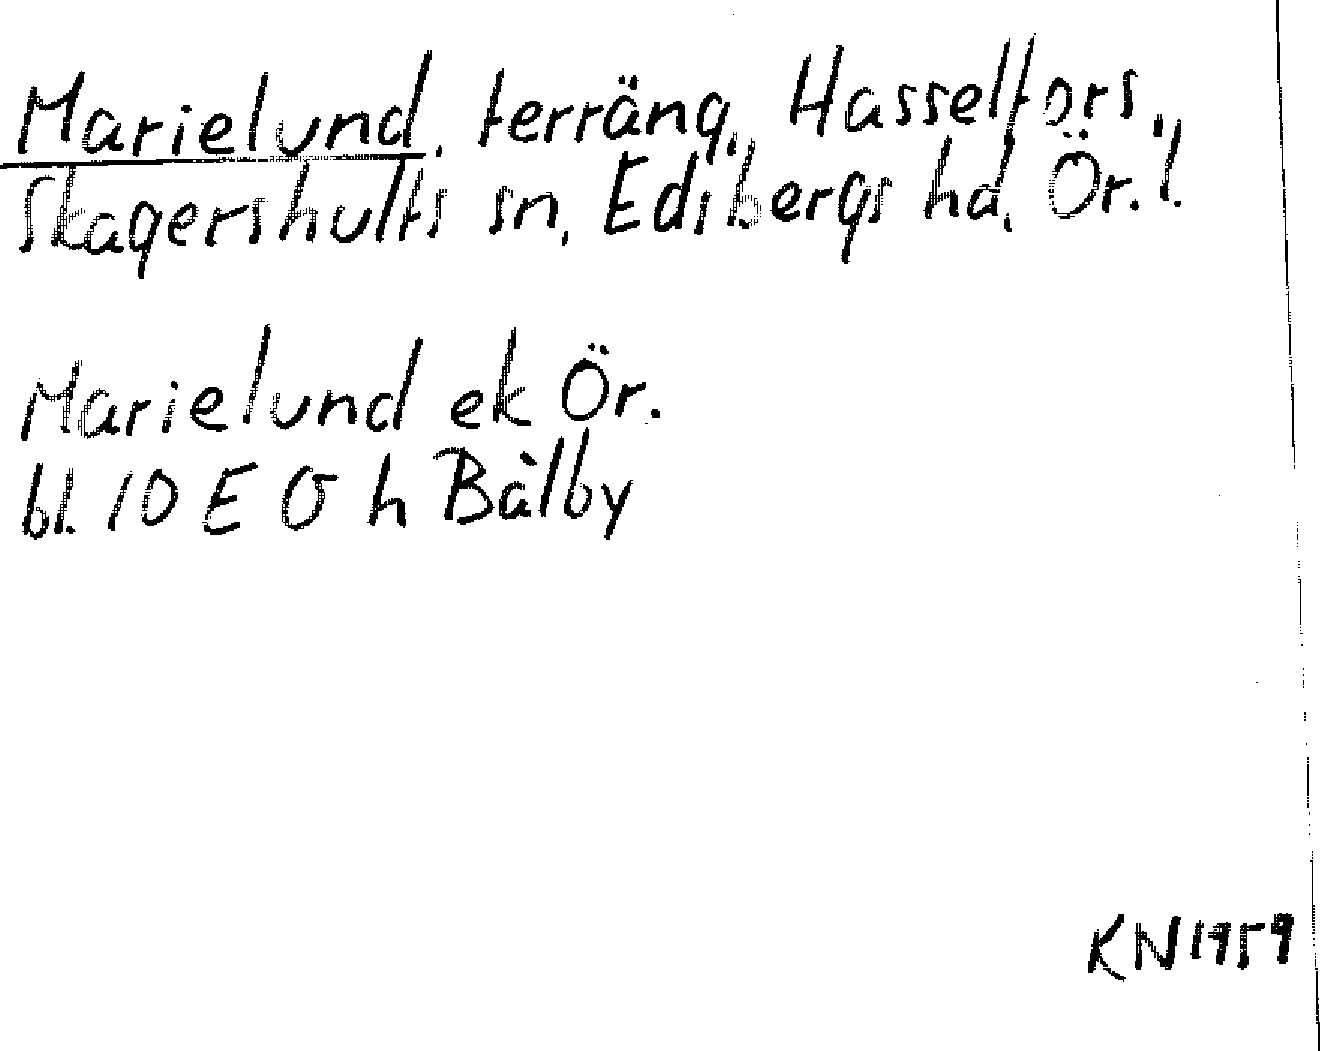 Marielund, terräng, Hasselfors,
Skagershults sn, Edsbergs hd, Ör. l.
Marielund ek Ör.
bl. 10 E 0 h Bålby
KN 1959